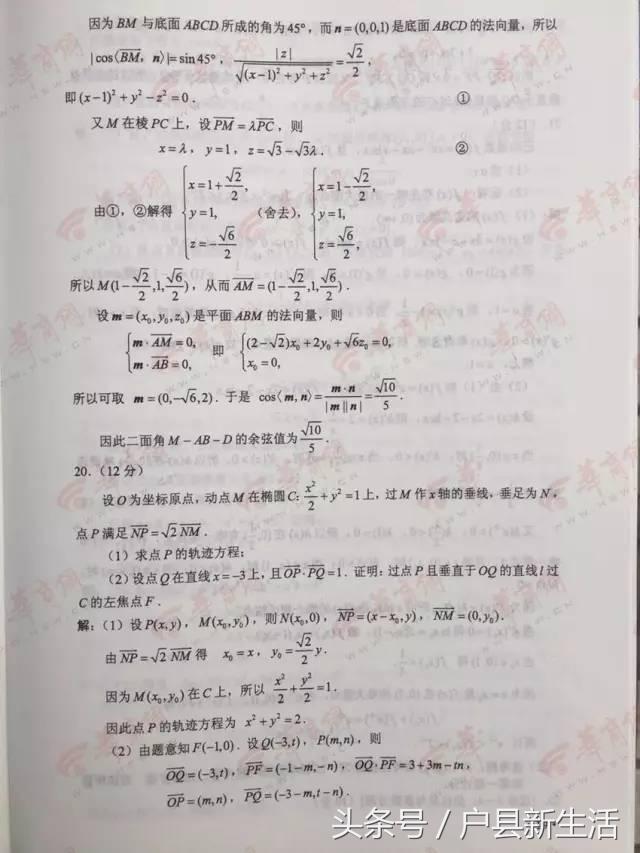 因为 BM 与底面 ABCD 所成的角为 45°，而 n = (0,0,1) 是底面 ABCD 的法向量，所以
|cos⟨BM→, n⟩| = sin 45°，|z|/√((x-1)²+y²+z²) = √2/2，
即 (x-1)²+y²-z²=0． ①
又 M 在棱 PC 上，设 PM→=λPC→，则
x=λ，y=1，z=√3-√3λ． ②
由①，②解得 {x=1+√2/2, y=1, z=-√6/2 （舍去），{x=1-√2/2, y=1, z=√6/2,
所以 M(1-√2/2,1,√6/2)，从而 AM→=(1-√2/2,1,√6/2)．
设 m=(x₀,y₀,z₀) 是平面 ABM 的法向量，则
{m·AM→=0, m·AB→=0, 即 {(2-√2)x₀+2y₀+√6z₀=0, x₀=0,
所以可取 m=(0,-√6,2)．于是 cos⟨m,n⟩=m·n/(|m||n|)=√10/5．
因此二面角 M-AB-D 的余弦值为 √10/5．
20.（12 分）
设 O 为坐标原点，动点 M 在椭圆 C: x²/2+y²=1 上，过 M 作 x 轴的垂线，垂足为 N，
点 P 满足 NP→=√2 NM→．
（1）求点 P 的轨迹方程；
（2）设点 Q 在直线 x=-3 上，且 OP→·PQ→=1．证明：过点 P 且垂直于 OQ 的直线 l 过
C 的左焦点 F．
解：（1）设 P(x,y)，M(x₀,y₀)，则 N(x₀,0)，NP→=(x-x₀,y)，NM→=(0,y₀)．
由 NP→=√2 NM→ 得 x₀=x，y₀=√2/2 y．
因为 M(x₀,y₀) 在 C 上，所以 x²/2+y²/2=1．
因此点 P 的轨迹方程为 x²+y²=2．
（2）由题意知 F(-1,0)．设 Q(-3,t)，P(m,n)，则
OQ→=(-3,t)，PF→=(-1-m,-n)，OQ→·PF→=3+3m-tn，
OP→=(m,n)，PQ→=(-3-m,t-n)．
头条号 / 户县新生活